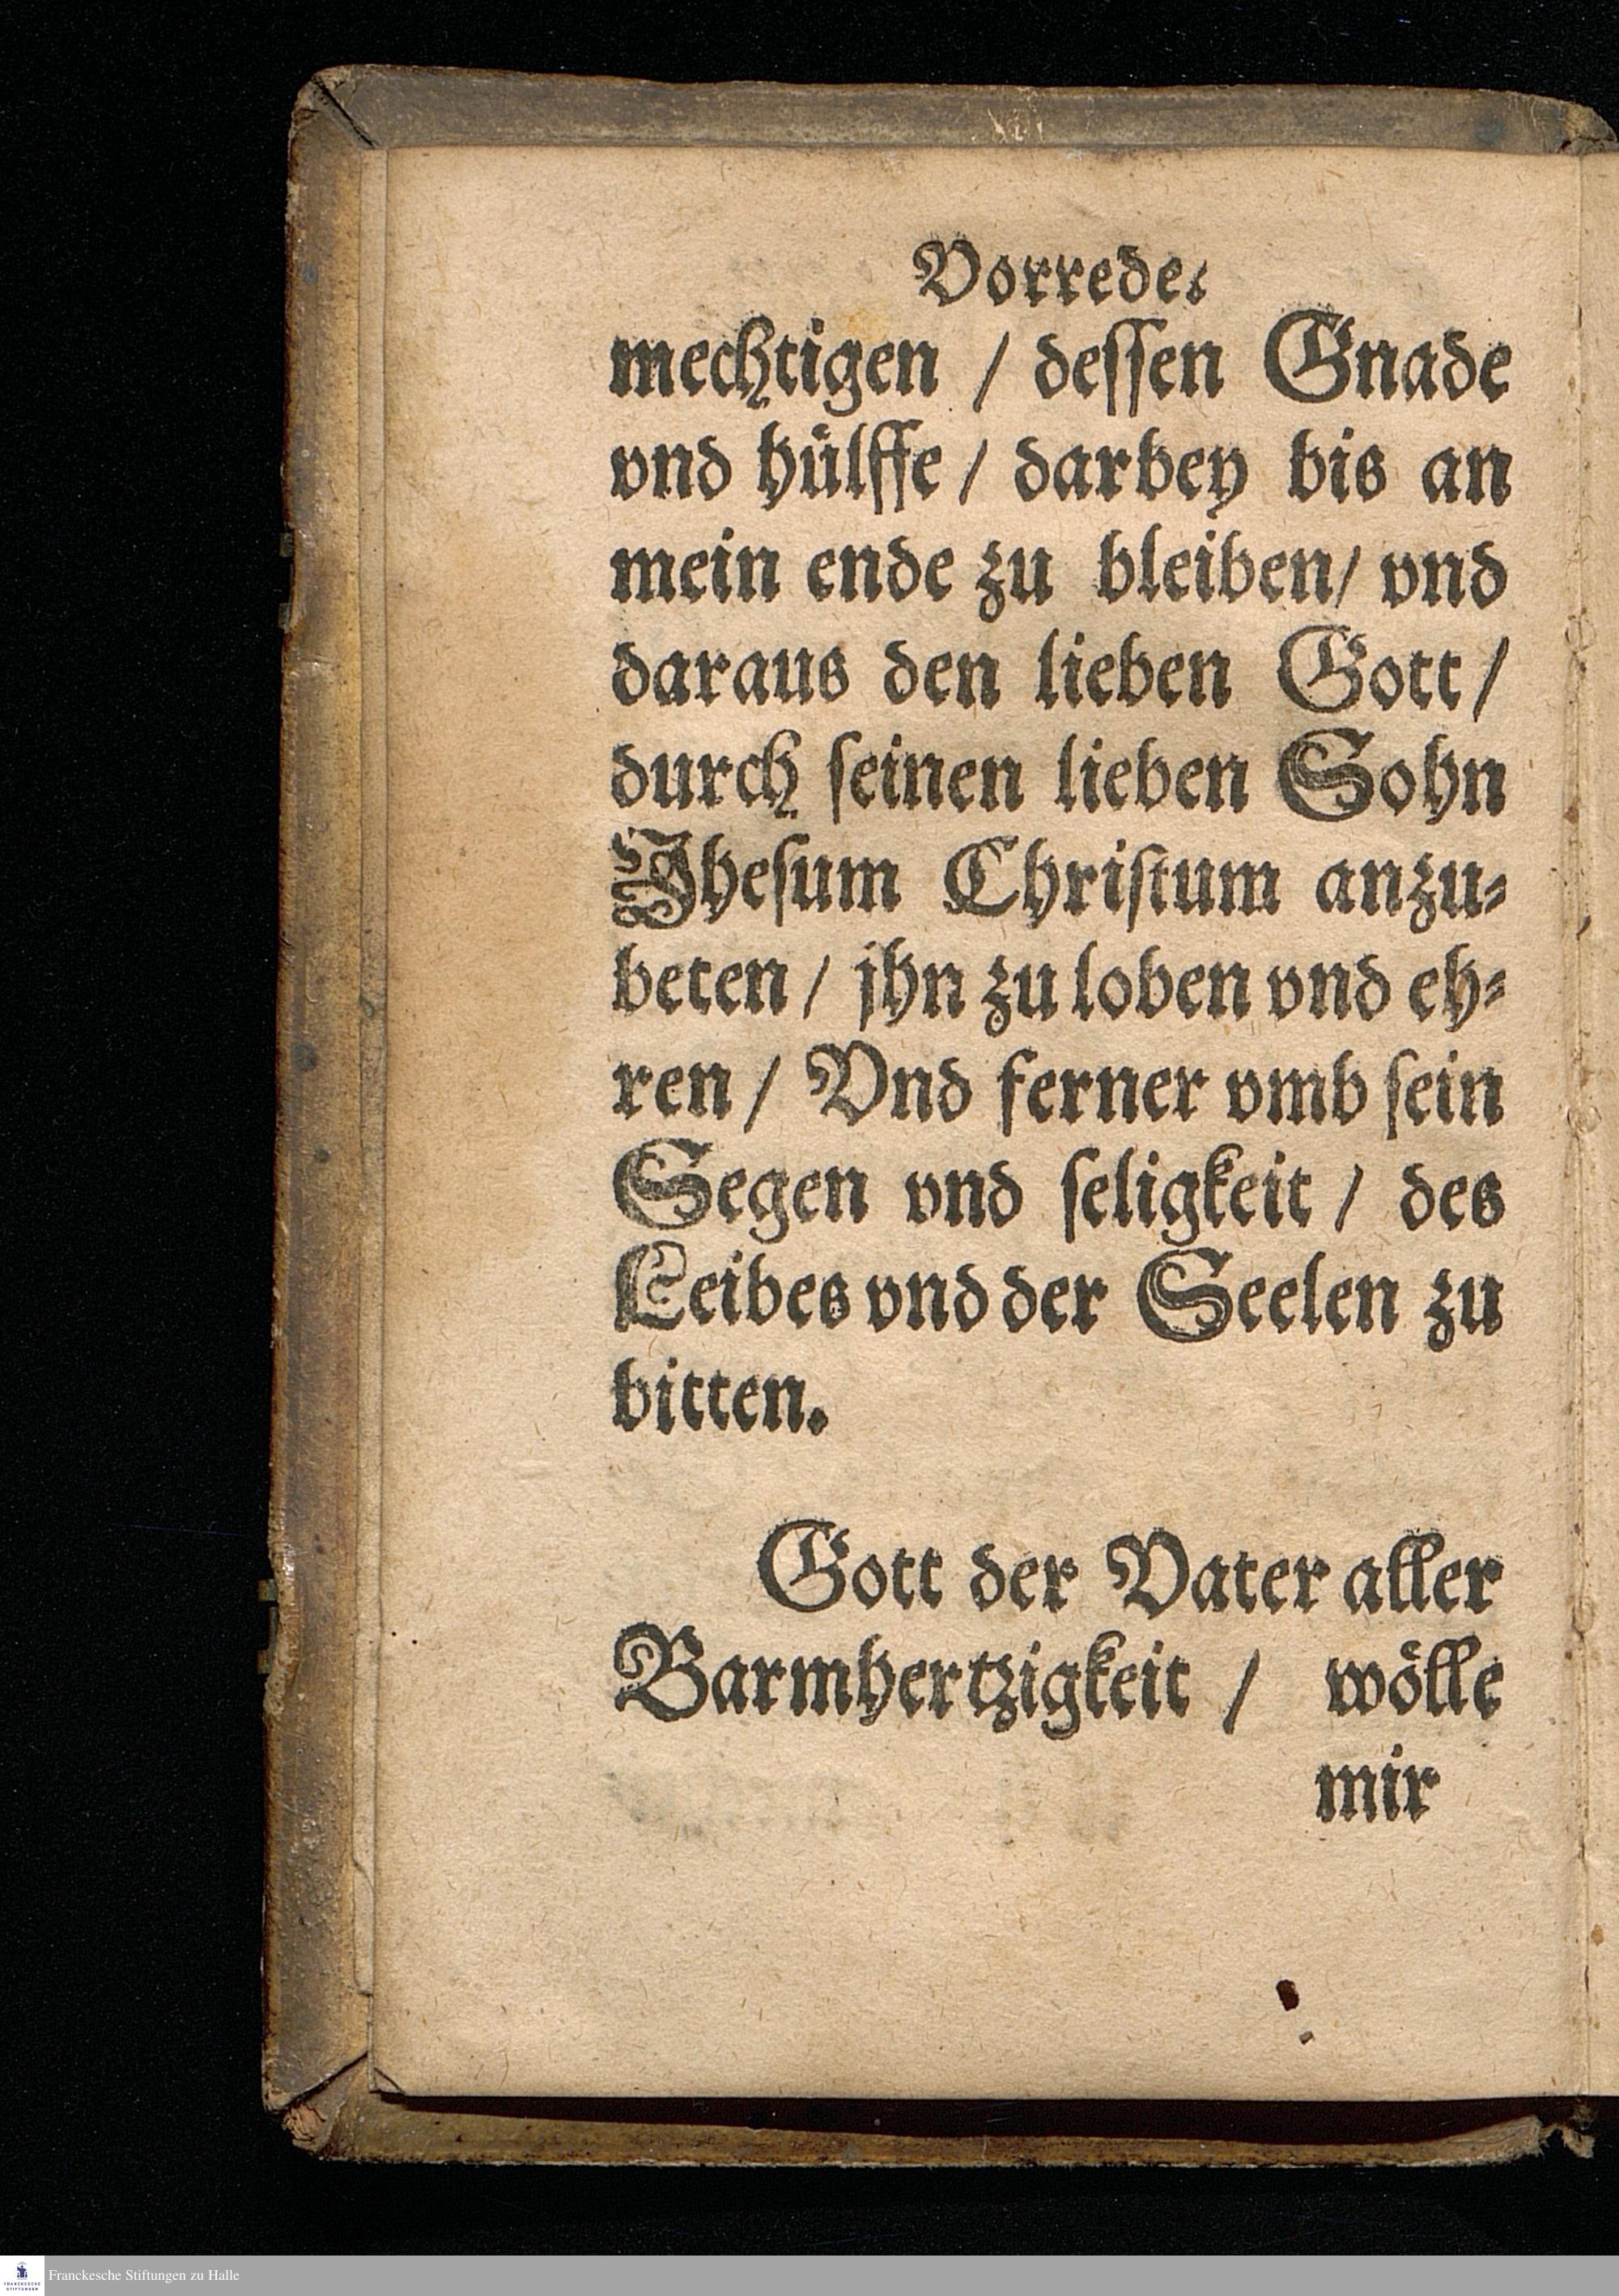 Vorrede.
mechtigen / deſſen Gnade
vnd huͤlffe / darbey bis an
mein ende zu bleiben / vnd
daraus den lieben Gott /
durch ſeinen lieben Sohn
Jheſum Chriſtum anzu⸗
beten / jhn zu loben vnd eh⸗
ren / Vnd ferner vmb ſein
Segen vnd ſeligkeit / des
Leibes vnd der Seelen zu
bitten.
Gott der Vater aller
Barmhertzigkeit / woͤlle
mir
FRANCKESCHE STIFTUNGEN
Franckesche Stiftungen zu Halle